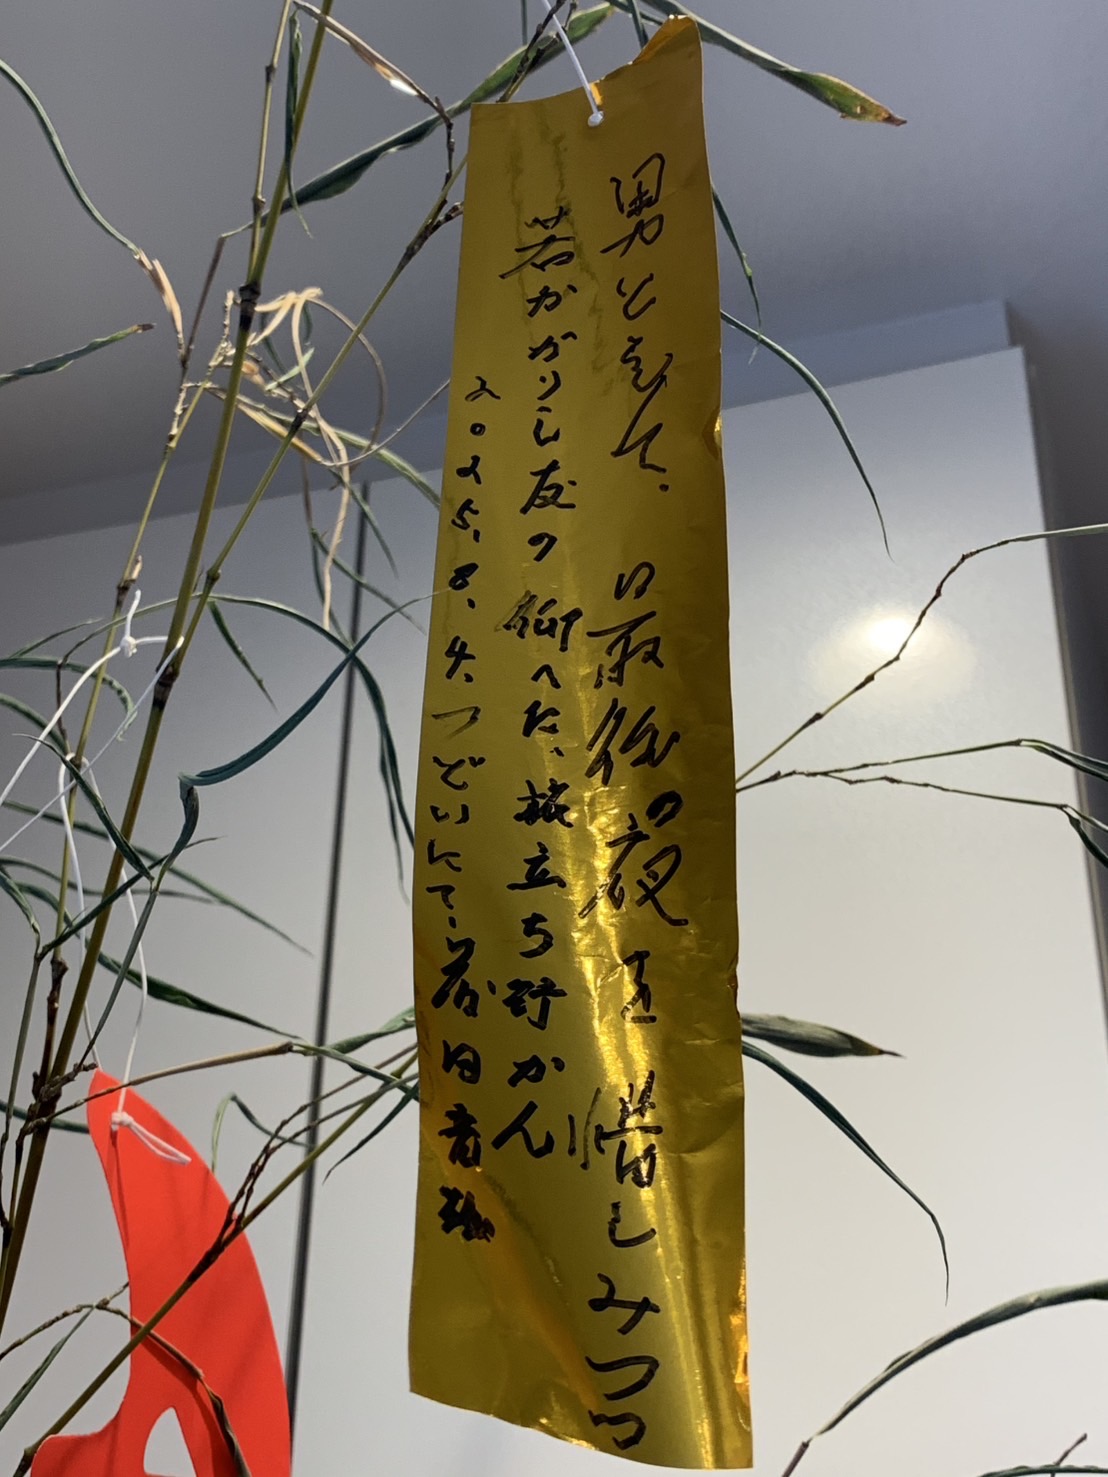 男として、最後の夜を惜しみつつ
若かがりし友の仰へた、旅立ち呼かん
2025.8.4.つどいにて.